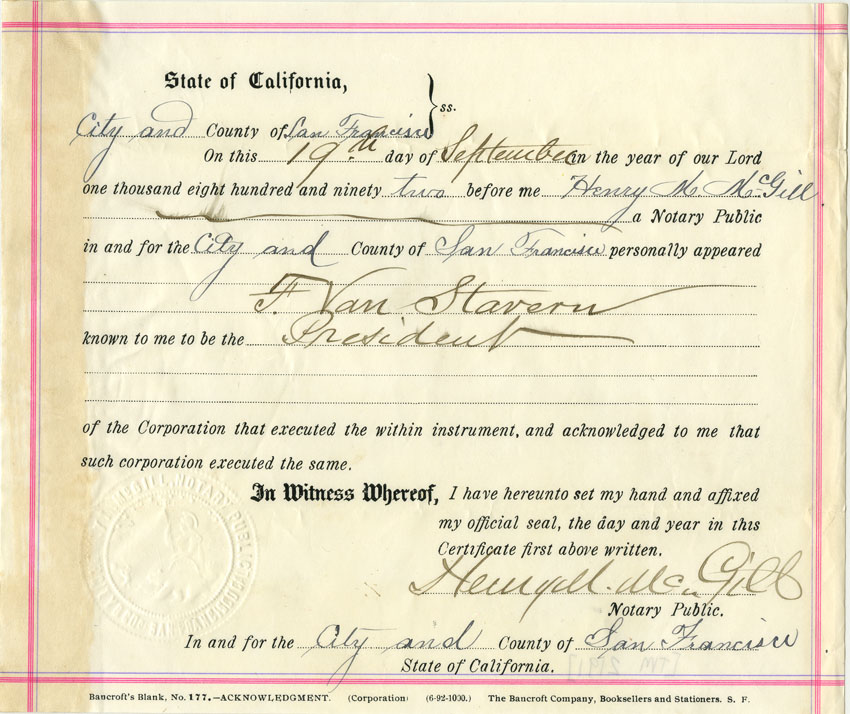 State of California,
} ss.
City and County of San Francisco
On this 19th day of September in the year of our Lord
one thousand eight hundred and ninety two before me Henry M McGill
a Notary Public
in and for the City and County of San Francisco personally appeared
F. Van Stavern
known to me to be the President
of the Corporation that executed the within instrument, and acknowledged to me that
such corporation executed the same.
In Witness Whereof, I have hereunto set my hand and affixed
my official seal, the day and year in this
Certificate first above written.
Henry M. McGill
Notary Public.
In and for the City and County of San Francisco
State of California.
Bancroft's Blank, No. 177.—ACKNOWLEDGMENT. (Corporation) (6-92-1000.) The Bancroft Company, Booksellers and Stationers. S. F.